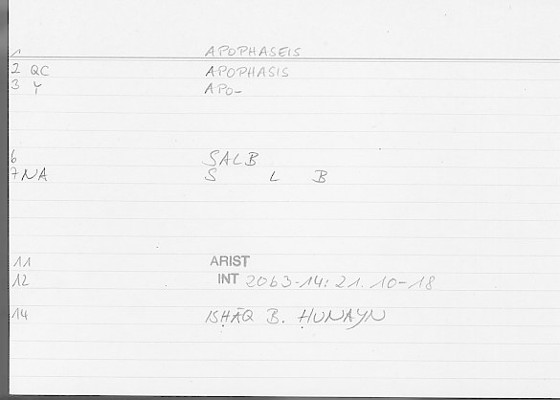 1 APOPHASEIS
2 QC APOPHASIS
3 Y APO-
6 SALB
7 NA S L B
11 ARIST
12 INT 2063-14: 21. 10-18
14 ISḤĀQ B. ḤUNAYN